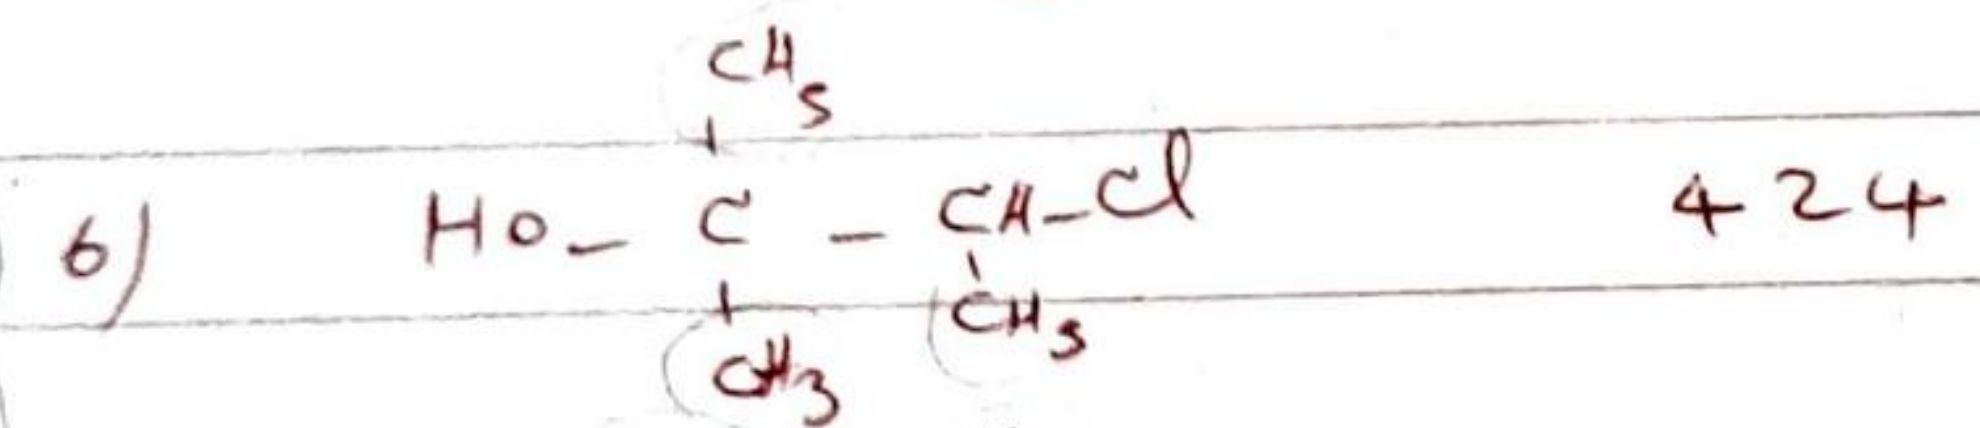 CH3
6) HO - C - CH - Cl 424
CH3
CH3